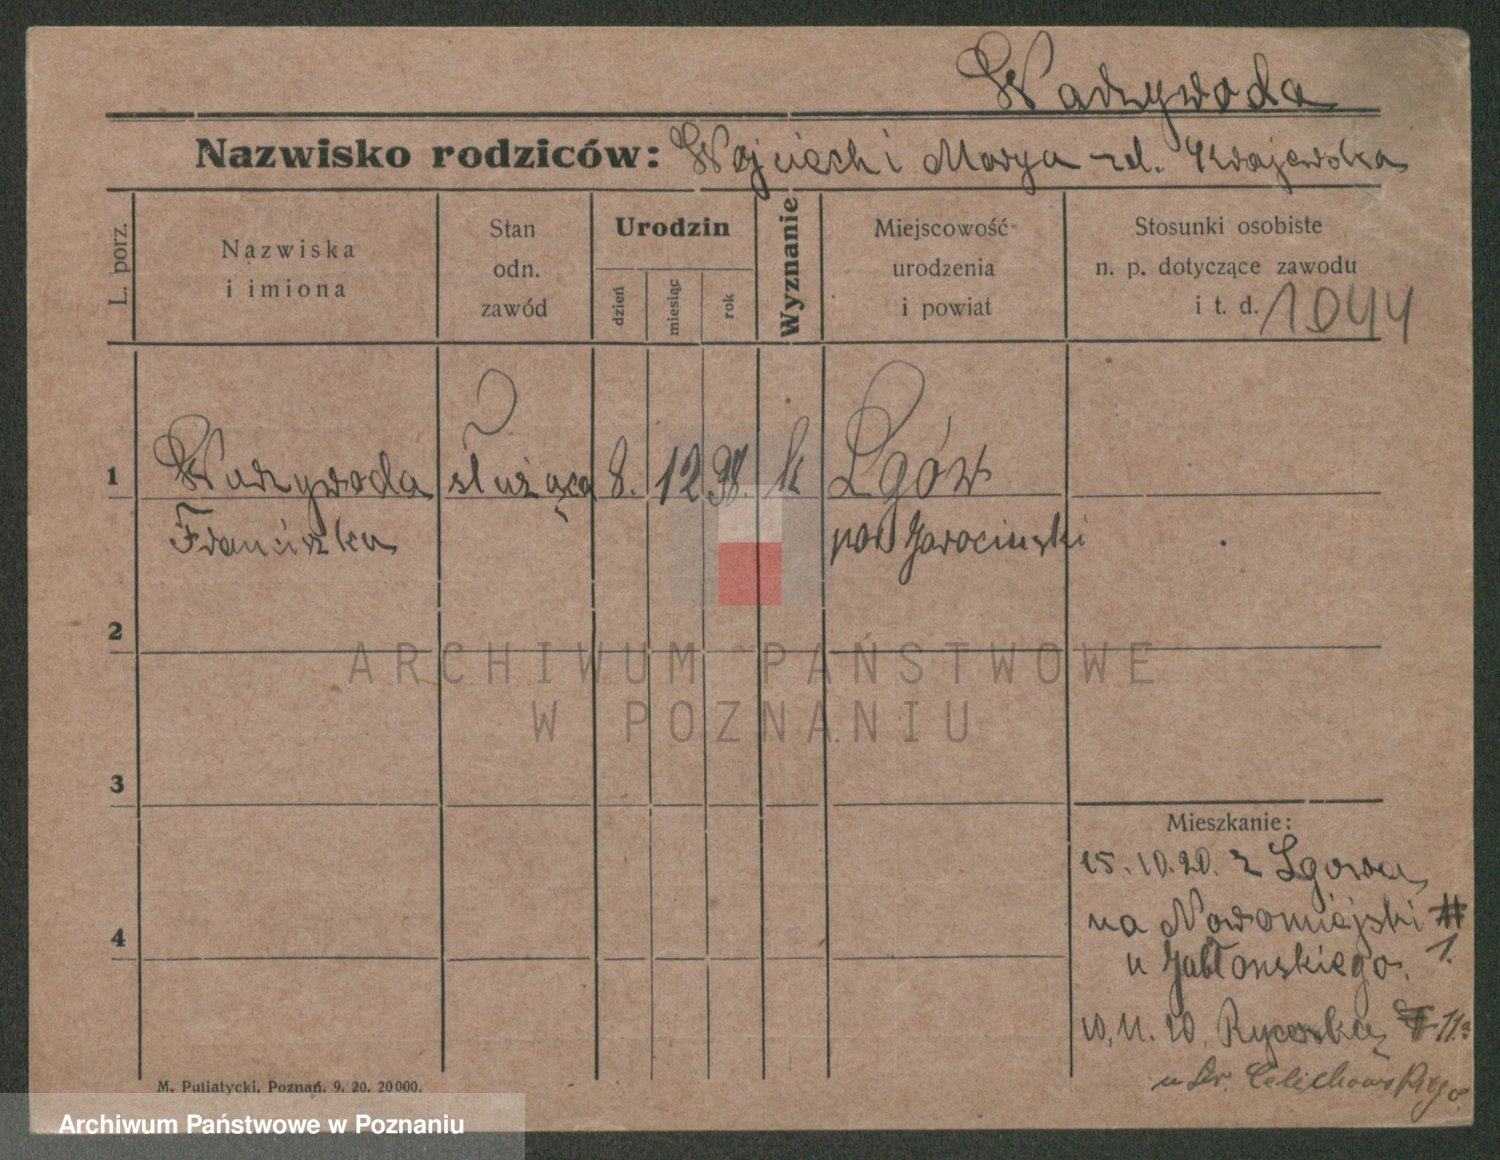 Wadzywoda
Nazwisko rodziców: Wojciech i Marya zd. Krajewska
L. porz.
Nazwiska
i imiona
Stan
odn.
zawód
Urodzin
dzień
miesiąc
rok
Wyznanie
Miejscowość
urodzenia
i powiat
Stosunki osobiste
n. p. dotyczące zawodu
i t. d. 1044
1 Wadzywoda służąca 8. 12 98. k Lgów
Franciszka pow Jarocinski
2
ARCHIWUM PAŃSTWOWE
W POZNANIU
3
Mieszkanie:
15.10.20. z Lgowa
na Nowomiejski
1.
u Jabłonskiego.
4
10.11.20. Rycerska 11a
u Dr. Celichowskiego
M. Putiatycki, Poznań. 9. 20. 20000.
Archiwum Państwowe w Poznaniu